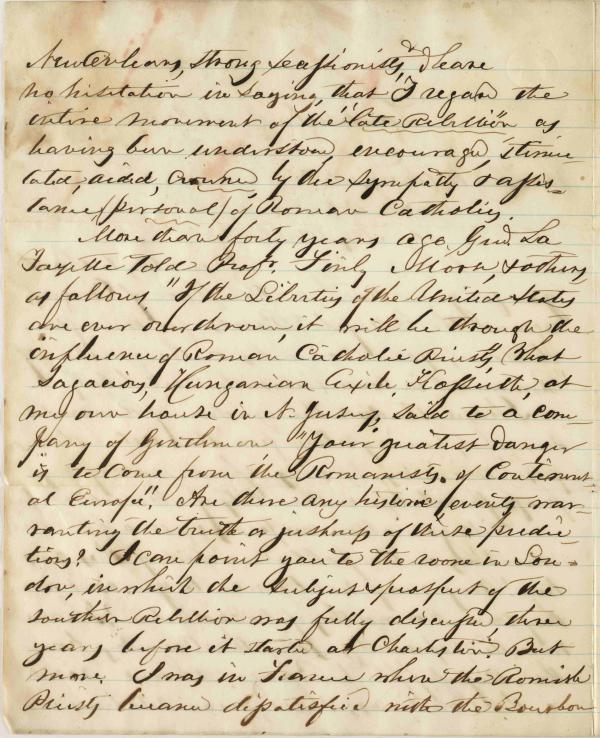 New Orleans, strong secessionists, I have
no hesitation in saying, that I regard the
entire movement of the "late Rebellion" as
having been understood, encouraged, stimu-
lated, aided, crowned, by the sympathy & assis-
tance (personal) of Roman Catholics.
More than forty years ago, Genl. La
Fayette told Profr. Finly Morse, & others,
as follows "If the Liberties of the United States
are ever overthrown, it will be through the
influence of Roman Catholic Priests", That
Sagacious, Hungarian Exile, Kossuth, at
my own house in N. Jersey, said to a com-
pany of Gentlemen "Your greatest danger
is to come from the Romanists of Continent-
al Europe". Are there any historic events war-
ranting the truth or justness of these predic-
tions? I can point you to the room in Lon-
don, in which the subject & prospect of the
Southern Rebellion was fully discussed, three
years before it started at Charleston. But
more. I was in France when the Romish
Priests became dissatisfied with the Bourbon